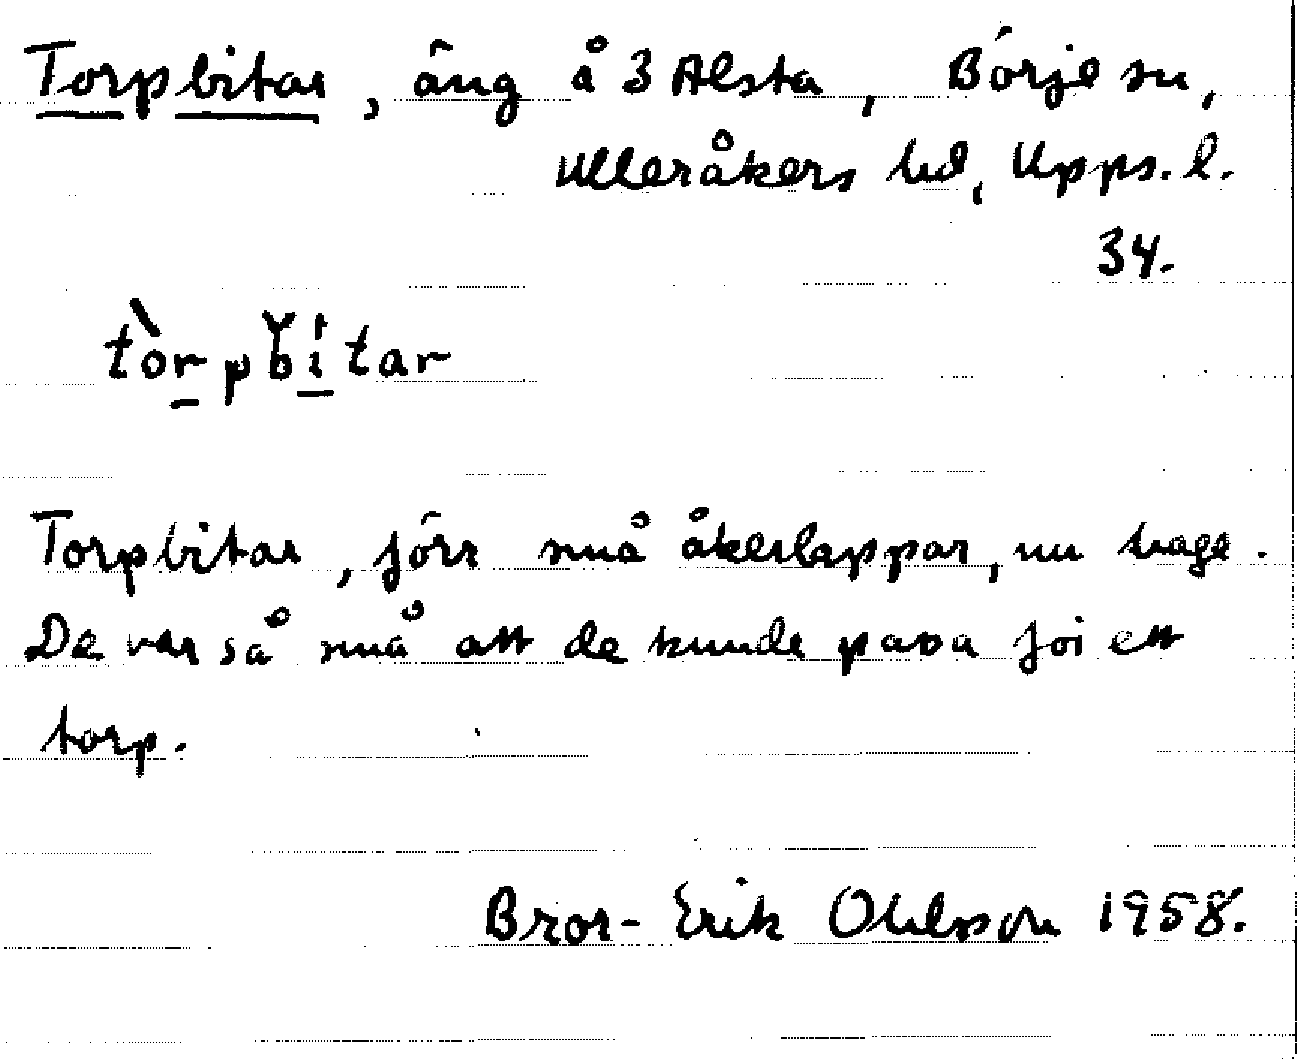 Torpbitar, äng å 3 Alsta, Börje sn,
Ulleråkers hd, Upps. l.
34.
tòrpbì́tar
Torpbitar, förr små åkerlappar, nu hage.
De var så små att de kunde passa för ett
torp.
Bror-Erik Ohlsson 1958.